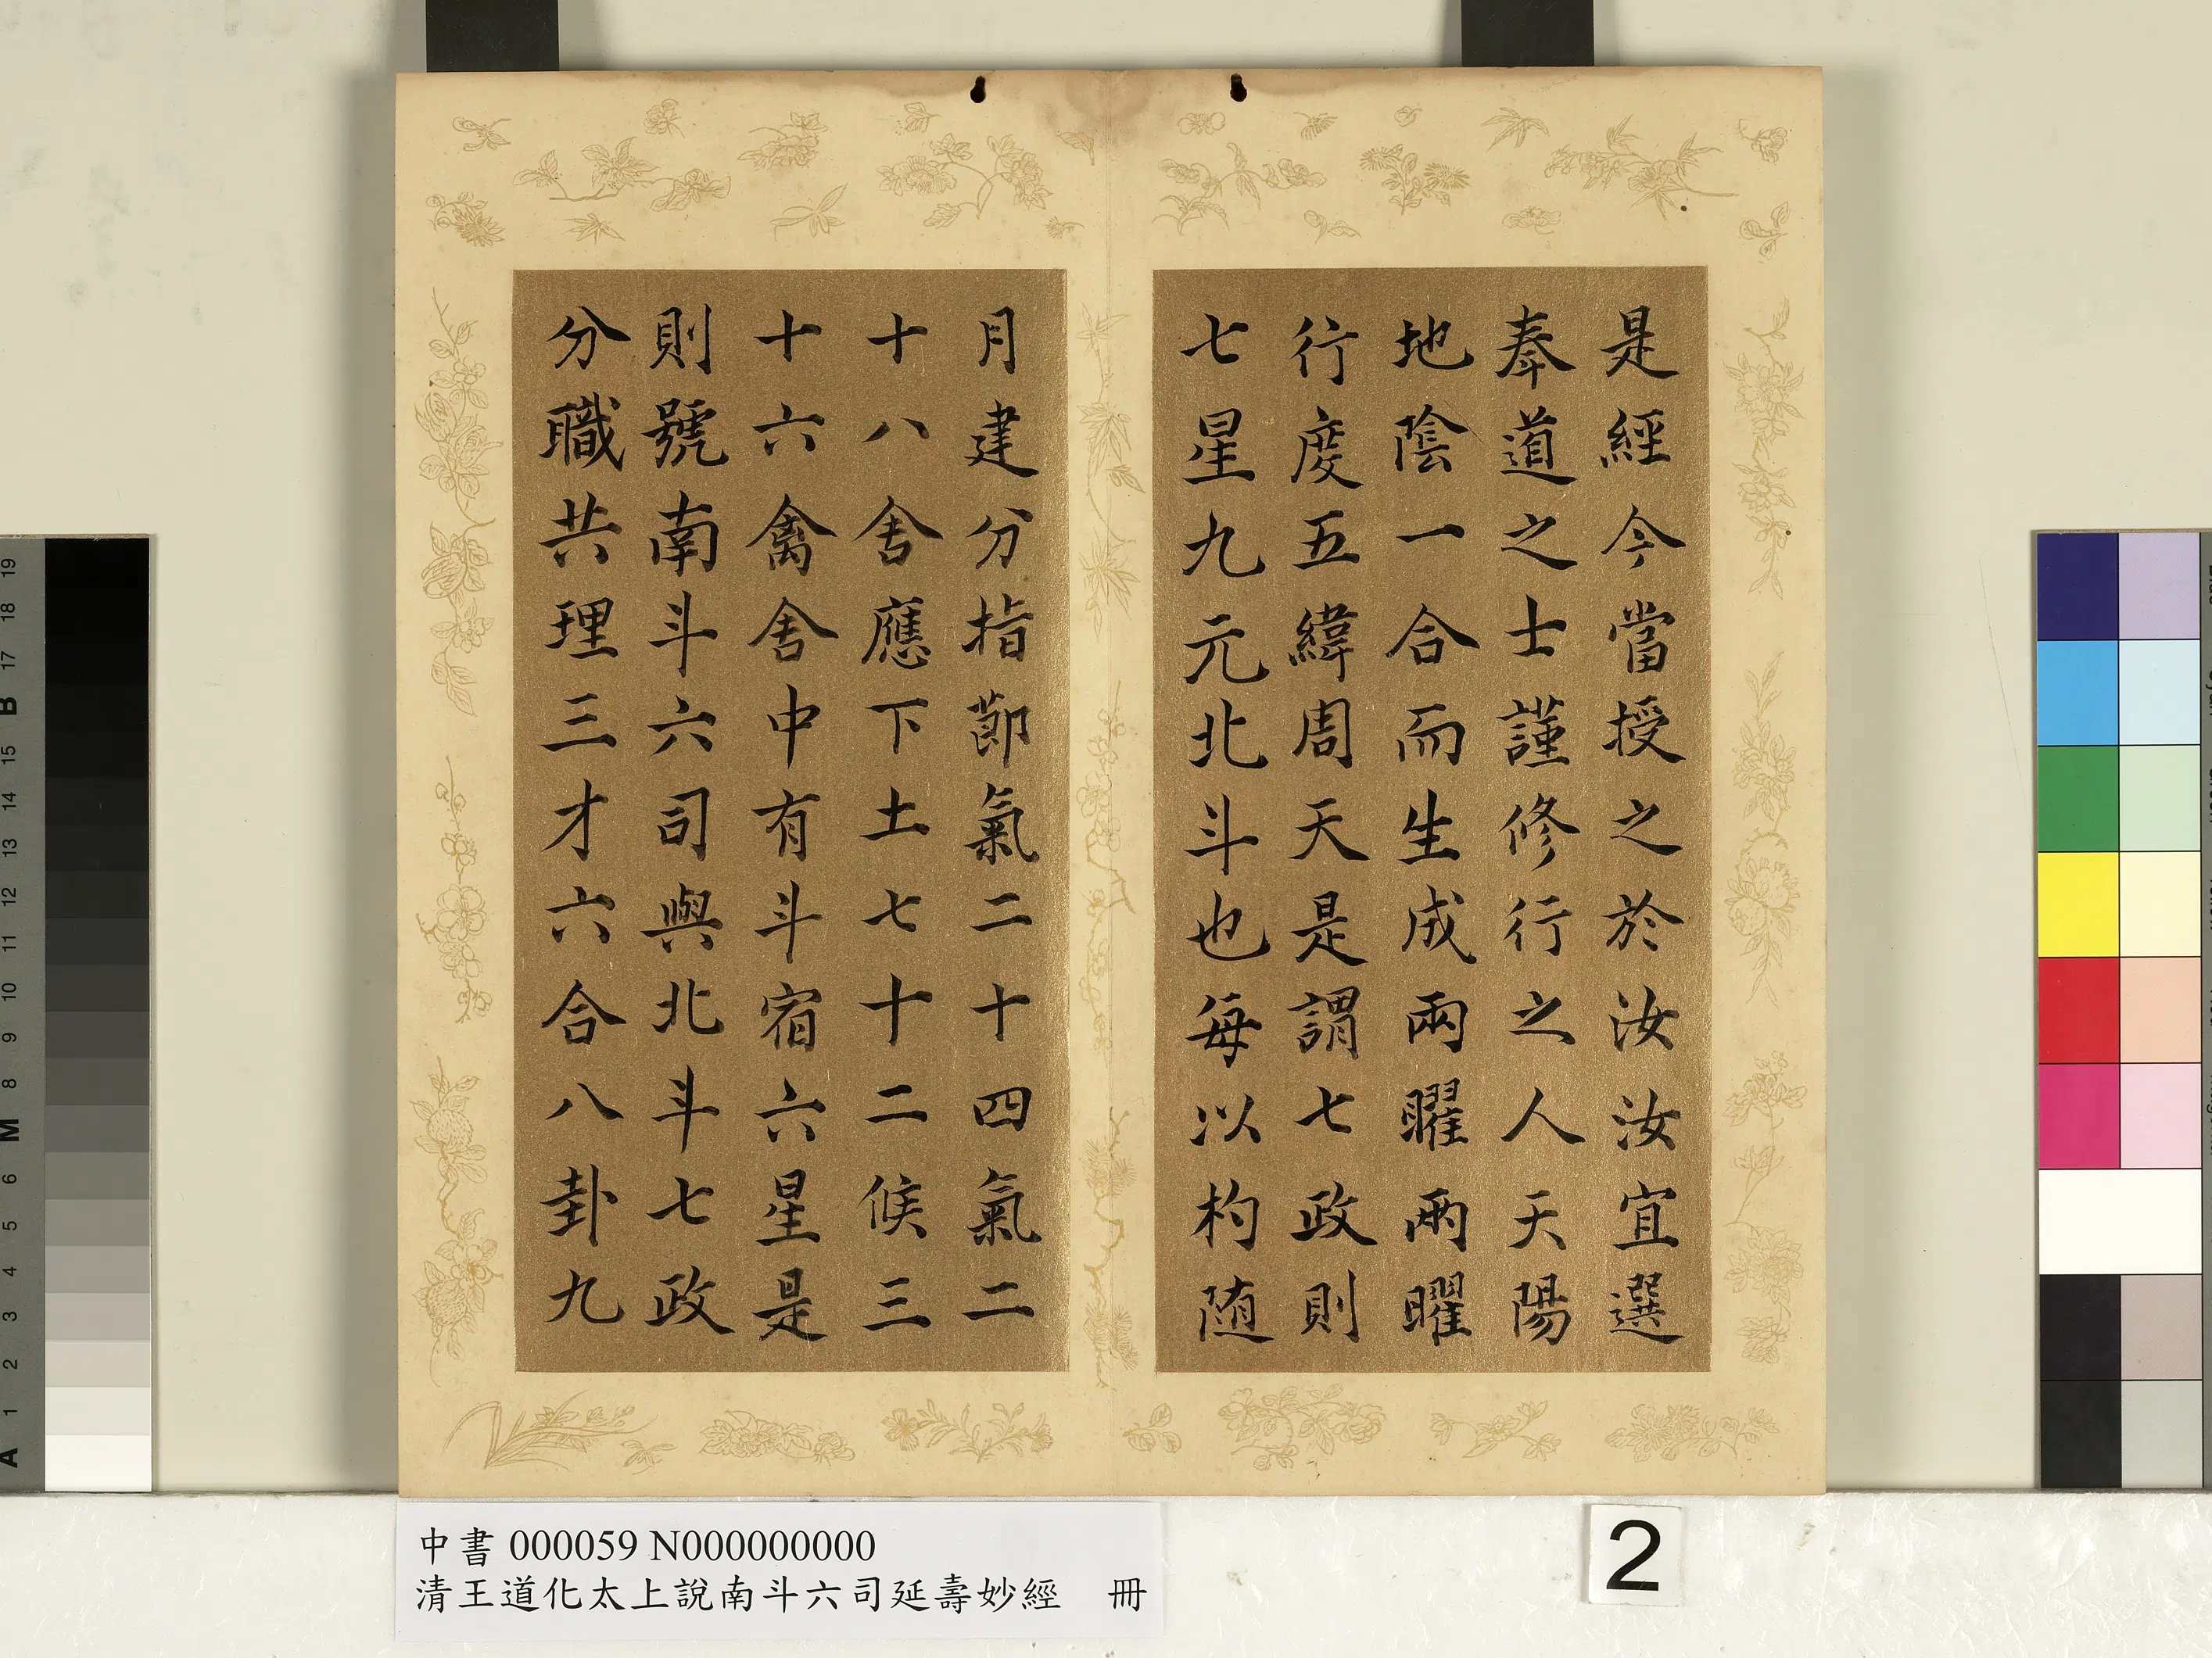 是經今當授之於汝汝宜選
奉道之士謹修行之人天陽
地陰一合而生成兩曜兩曜
行度五緯周天是謂七政則
七星九元北斗也每以杓随
月建分指節氣二十四氣二
十八舍應下土七十二候三
十六禽舍中有斗宿六星是
則號南斗六司與北斗七政
分職共理三才六合八卦九
中書 000059 N000000000
清王道化太上說南斗六司延壽妙經 冊
2
19
18
17
B
15
14
13
12
11
10
9
8
M
6
5
4
3
2
1
A